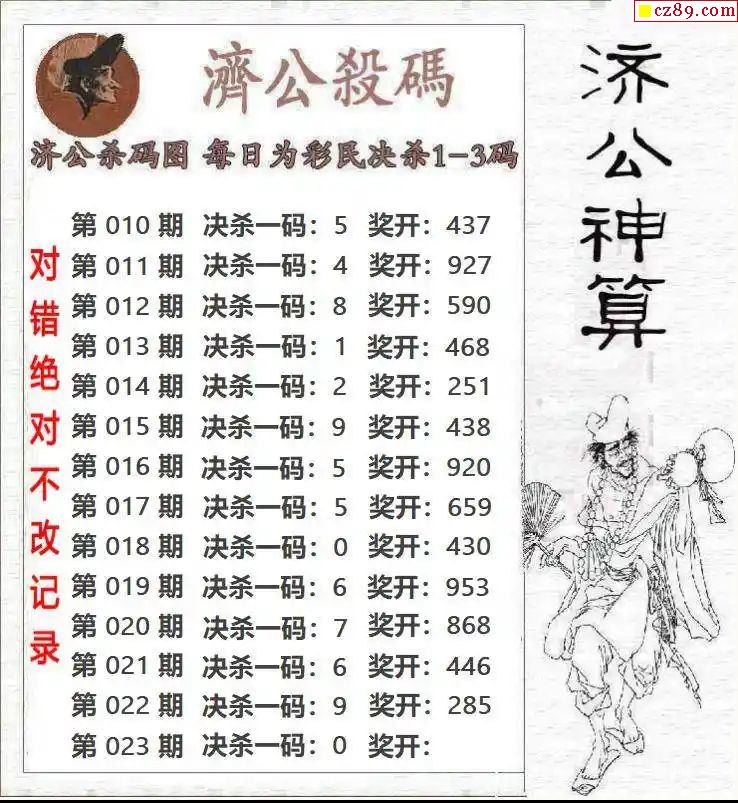 cz89.com
濟公殺碼
济公杀码图 每日为彩民决杀1-3码
第 010 期 决杀一码：5 奖开：437
第 011 期 决杀一码：4 奖开：927
第 012 期 决杀一码：8 奖开：590
第 013 期 决杀一码：1 奖开：468
第 014 期 决杀一码：2 奖开：251
第 015 期 决杀一码：9 奖开：438
第 016 期 决杀一码：5 奖开：920
第 017 期 决杀一码：5 奖开：659
第 018 期 决杀一码：0 奖开：430
第 019 期 决杀一码：6 奖开：953
第 020 期 决杀一码：7 奖开：868
第 021 期 决杀一码：6 奖开：446
第 022 期 决杀一码：9 奖开：285
第 023 期 决杀一码：0 奖开：
对错绝对不改记录
济公神算